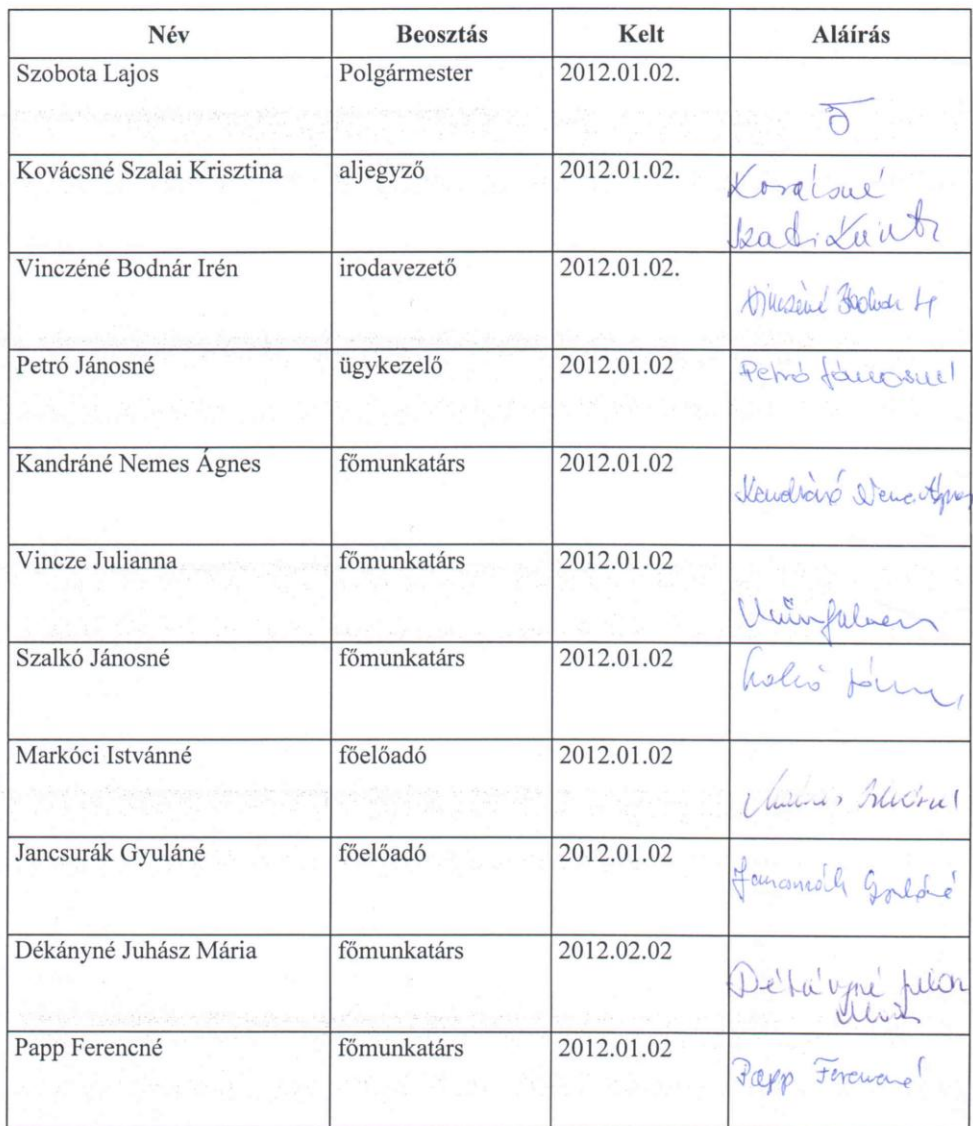 Név Beosztás Kelt Aláírás
Szobota Lajos Polgármester 2012.01.02.
Kovácsné Szalai Krisztina aljegyző 2012.01.02. Kovácsné
Szalai Kriszti
Vinczéné Bodnár Irén irodavezető 2012.01.02.
Vinczéné Bodnár
Petró Jánosné ügykezelő 2012.01.02 Petró Jánosné
Kandráné Nemes Ágnes főmunkatárs 2012.01.02
Kandráné Nemes Ágnes
Vincze Julianna főmunkatárs 2012.01.02
Szalkó Jánosné főmunkatárs 2012.01.02
Markóci Istvánné főelőadó 2012.01.02
Jancsurák Gyuláné főelőadó 2012.01.02
Jancsurák Gyuláné
Dékányné Juhász Mária főmunkatárs 2012.02.02
Dékányné Juhász
Mária
Papp Ferencné főmunkatárs 2012.01.02
Papp Ferencné